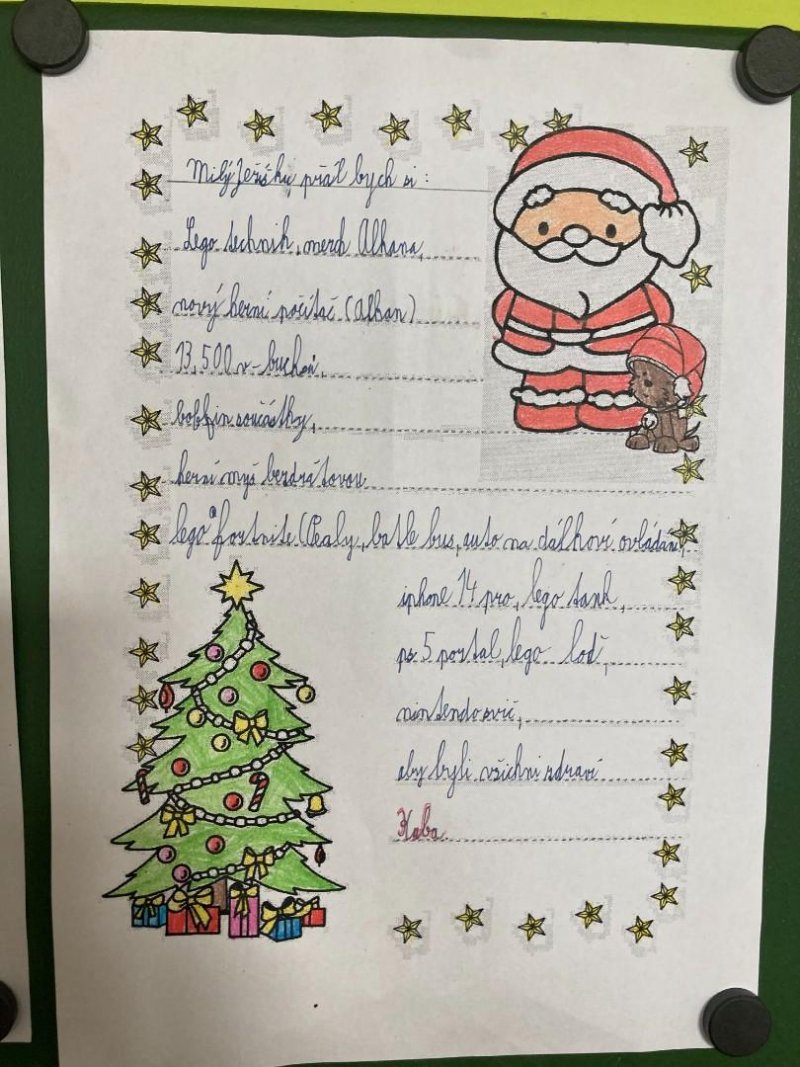 Milý Ježíšku, přál bych si:
Lego technik, merch Alhana,
nový herní počítač (alhan)
13,500 v-buchů,
boffin součástky,
herní myš bezdrátovou
lego fortnite (Pealy, batle bus, auto na dálkové ovládání,
iphone 14 pro, lego tank,
ps 5 portal, lego loď,
nintendo svič,
aby byli všichni zdraví
Kuba